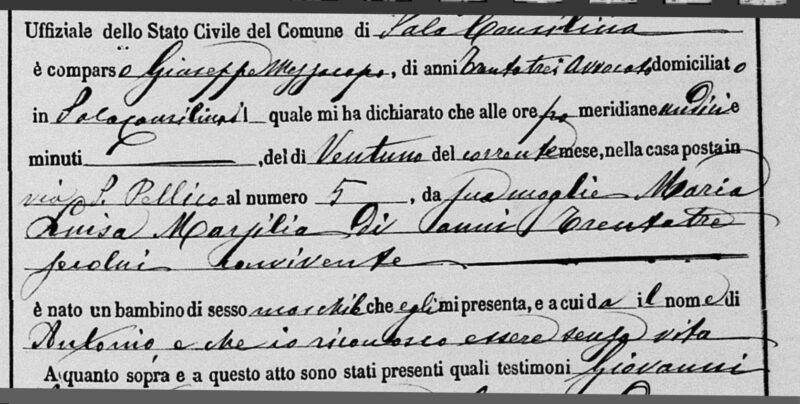 Uffiziale dello Stato Civile del Comune di Sala Consilina
è comparso Giuseppe Mezzacapo, di anni trentatrei Avvocato domiciliato
in Sala Consilina il quale mi ha dichiarato che alle ore pomeridiane undici e
minuti ———, del dì Ventuno del corrente mese, nella casa posta in
via S. Pellico al numero 5, da sua moglie Maria
Luisa Marsilia Di anni Trentatre
secolui convivente
è nato un bambino di sesso maschile che egli mi presenta, e a cui da il nome di
Antonio e che io riconosco essere senza vita
A quanto sopra e a questo atto sono stati presenti quali testimoni Giovanni